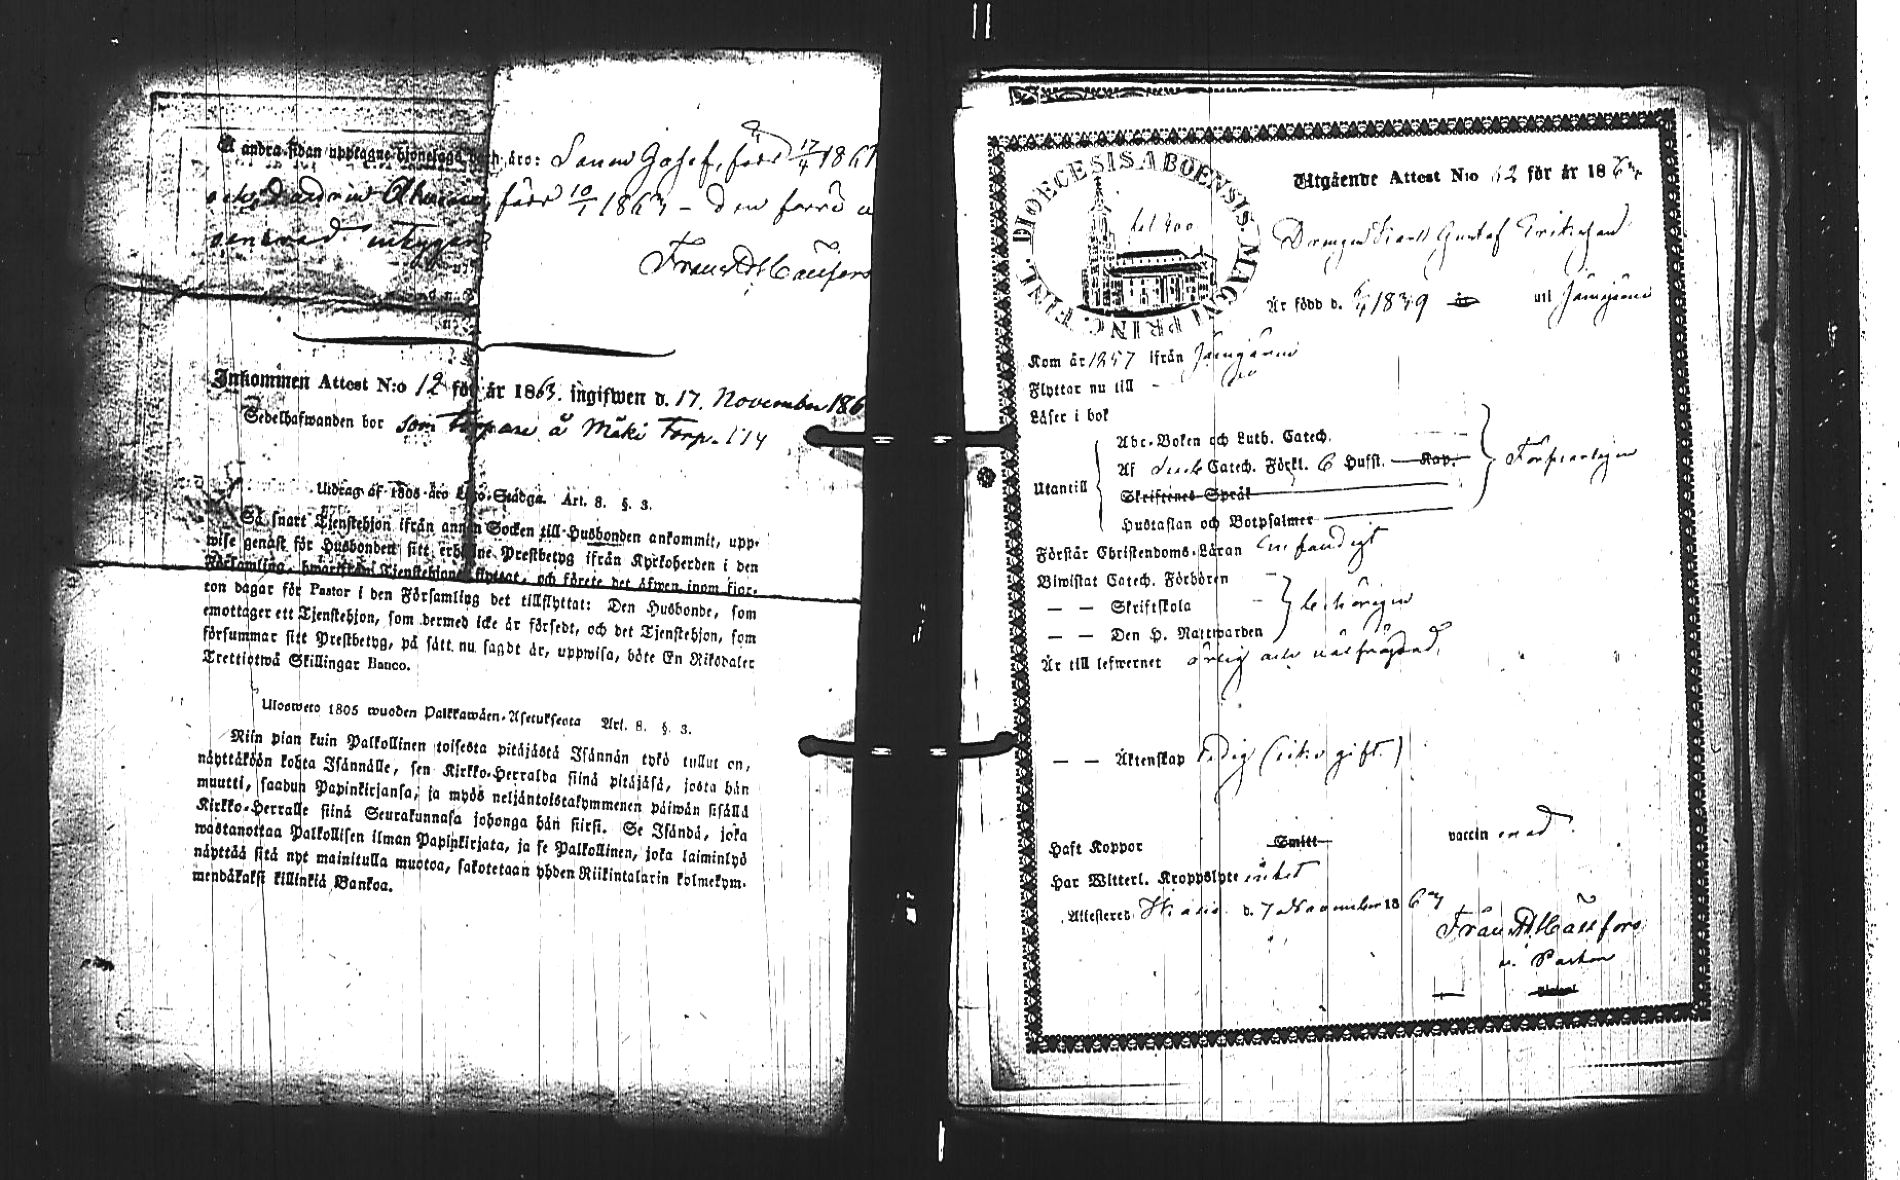 Å andra sidan upptagne hjonelags barn äro: Sonen Josef, född 17/4 1861
och Dottren född 10/1 1863 – den förra
vaccinerad intygar
Frans
Inkommen Attest N:o 12 för år 1863. ingifwen d. 17. November 186
Sedelhafwanden bor som Torpare å Mäki Torp.
Utdrag af 1805 års Lego-Stadga. Art. 8. §. 3.
Så snart Tjenstehjon ifrån annan Socken till Husbonden ankommit, upp-
wise genast för Husbonden sitt erhållne Prestbetyg ifrån Kyrkoherden i den
Församling, hwarifrån Tjenstehjonet flyttat, och förete det äfwen inom fjor-
ton dagar för Pastor i den Församling det tillflyttat: Den Husbonde, som
emottager ett Tjenstehjon, som dermed icke är försedt, och det Tjenstehjon, som
försummar sitt Prestbetyg, på sätt nu sagdt är, uppwisa, böte En Riksdaler
Trettiotwå Skillingar Banco.
Ulosweto 1805 wuoden Palkkawäen-Asetuksesta Art. 8. §. 3.
Niin pian kuin Palkollinen toisesta pitäjästä Isännän tykö tullut on,
näyttäköön kohta Isännälle, sen Kirkko-Herralda siinä pitäjäsä, josta hän
muutti, saadun Papinkirjansa, ja myös neljäntoistakymmenen päiwän sisällä
Kirkko-Herralle siinä Seurakunnasa johonga hän siirsi. Se Isändä, joka
wastanottaa Palkollisen ilman Papinkirjata, ja se Palkollinen, joka laiminlyö
näyttää sitä nyt mainitulla muotoa, sakotetaan yhden Riikintalarin kolmekym-
mendäkaksi killinkiä Bankoa.
DIOECESIS ABOENSIS MAGNI PRINC. FINL.
fol 400
Utgående Attest N:o 12 för år 1863
Drengen Gustaf Eriksson
Är född d. 1839 uti Jämijärvi
Kom år 1857 ifrån Jämijärvi
Flyttar nu till
Läser i bok
Utantill
Abc-Boken och Luth. Catech.
Af Catech. Förkl. 6 Hufst. Kap.
Skriftenes Språk
Hustaflan och Botpsalmer
Försvarligen
Förstår Christendoms-Läran
Biwistat Catech. Förhören
— — Skriftskola
— — Den H. Nattwarden
behörigen
Är till lefwernet ärlig och välfrägdad,
— — Äktenskap ledig (icke gift.)
Haft Koppor Smitt vaccinerad
Har Witterl. Kroppslyte intet
Attesteres d. 7 November 1863
Frans
v. Pastor